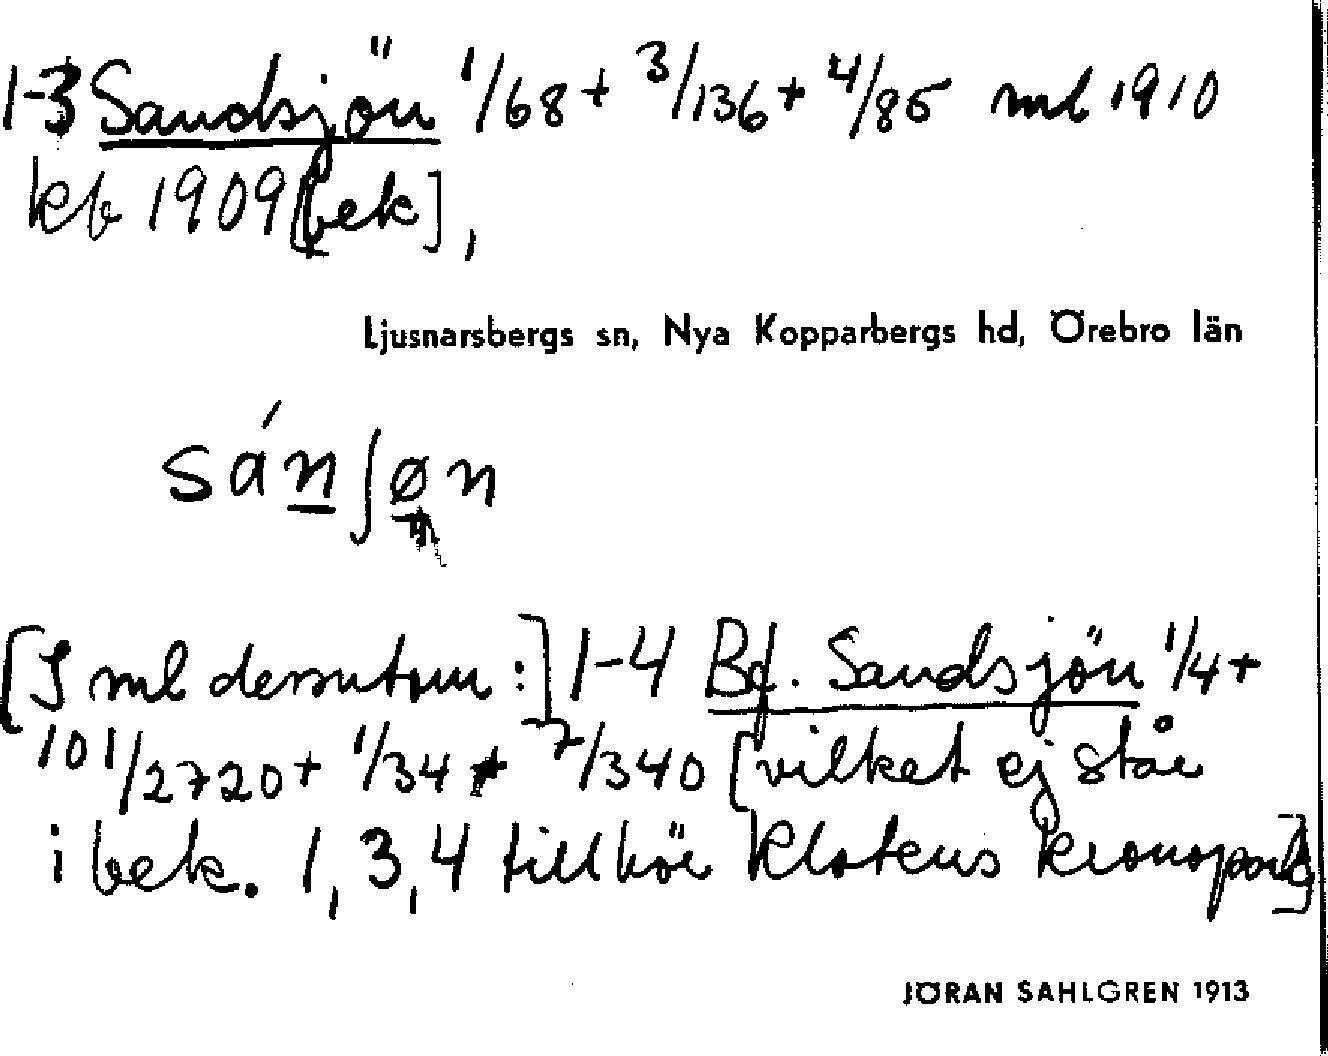 1-3 Sandsjön 1/68 + 3/136 + 4/85 ml 1910
kb 1909 [bek],
Ljusnarsbergs sn, Nya Kopparbergs hd, Örebro län
sánʃøn
[I ml dessutom:] 1-4 Bd. Sandsjön 1/4 +
101/2720 + 1/34 + 7/340 [vilket ej står
i bek. 1, 3, 4 tillhör Klotens kronopark]
JÖRAN SAHLGREN 1913